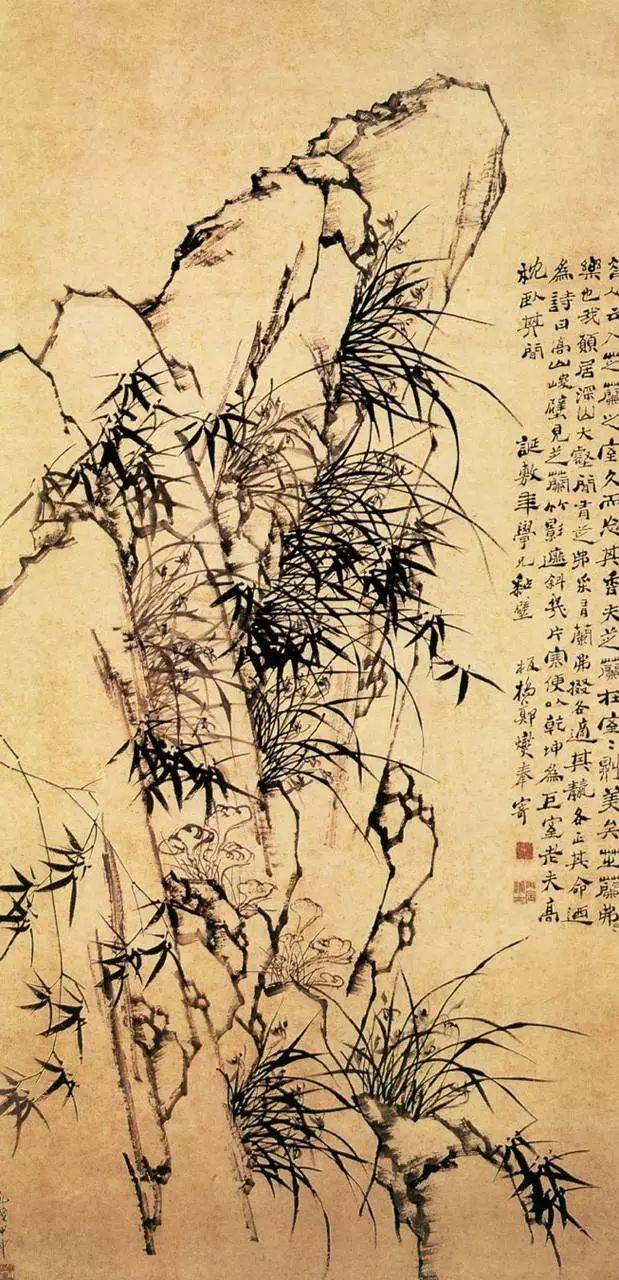 昔人云入芝蘭之室久而忘其香夫芝蘭在室〻則美矣芝蘭弗
樂也我願居深山大壑間有芝弗采有蘭弗掇各適其各正其命迺
為詩曰高山峻壁見芝蘭竹影遮斜幾片寒便以乾坤為巨室老夫高
枕臥其間 誕敷年學兄粘壁 板橋鄭燮奉寄